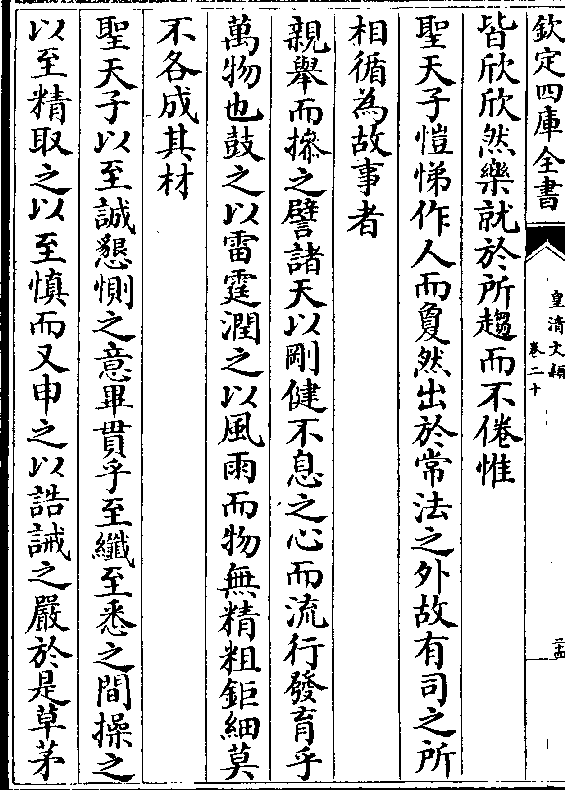 欽定四庫全書
皇清文穎
卷二十
皆欣欣然樂就於所趨而不倦惟
聖天子愷悌作人而敻然出於常法之外故有司之所
相循為故事者
親舉而摻之譬諸天以剛健不息之心而流行發育乎
萬物也鼓之以雷霆潤之以風雨而物無精粗鉅細莫
不各成其材
聖天子以至誠懇惻之意畢貫乎至纖至悉之間操之
以至精取之以至慎而又申之以誥誡之嚴於是草茅